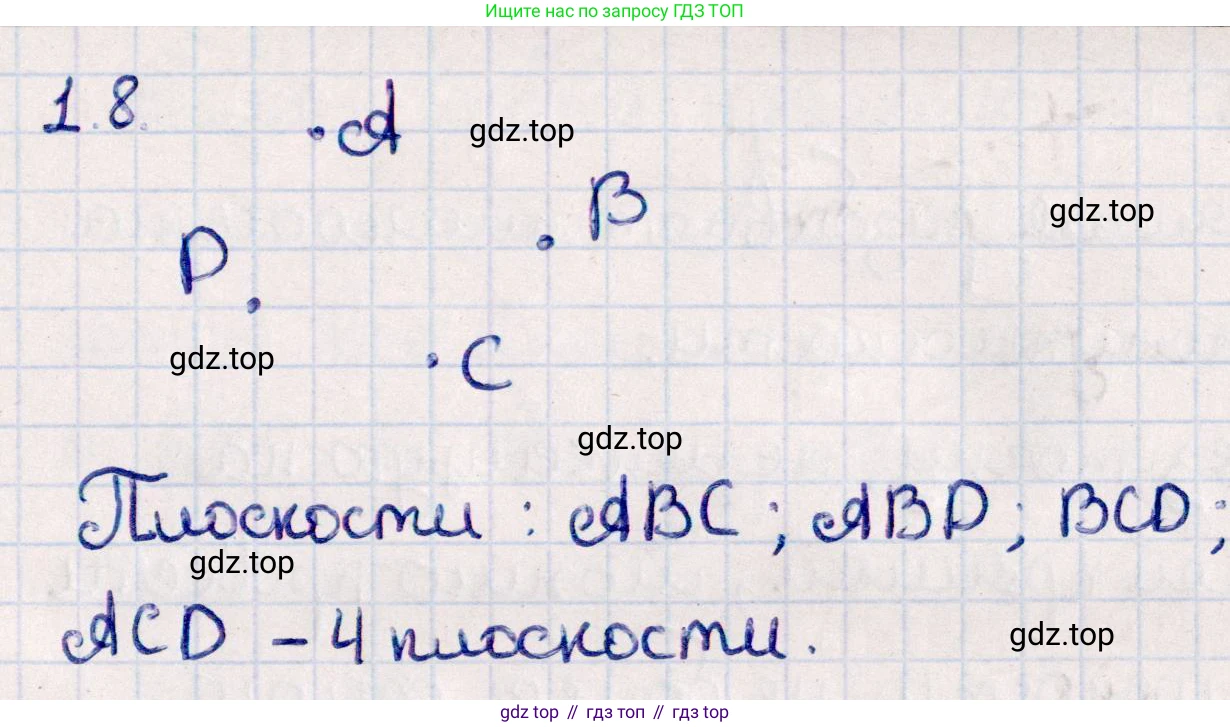 Ищите нас по запросу ГДЗ ТОП
1.8.
A
gdz.top
B
gdz.top
D
gdz.top
C
gdz.top
Плоскости : ABC ; ABD ; BCD ;
gdz.top
ACD – 4 плоскости.
gdz.top
gdz top // гдз топ // гдз top